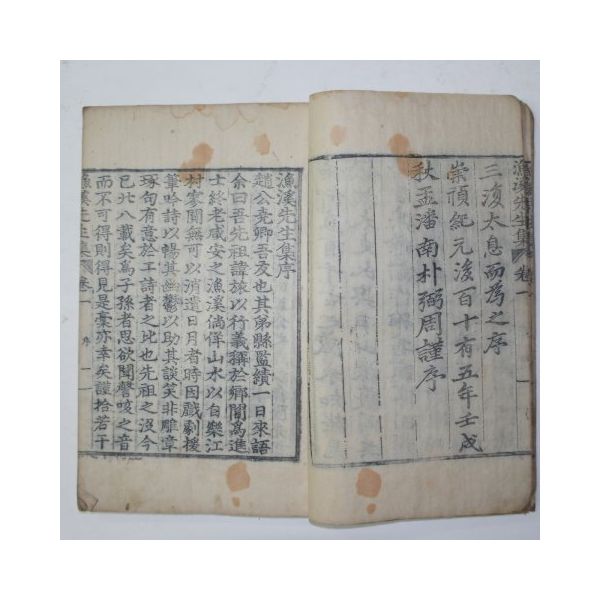 三復太息而爲之序
崇禎紀元後百十有五年壬戌
秋孟潘南朴弼周謹序
漁溪先生集 卷一
漁溪先生集序
趙公堯卿吾友也其弟縣監績一日來語
余曰吾先祖諱旅以行義稱於鄉闈爲進
士終老咸安之漁溪倘佯山水以自樂江
村寥閴無可以消遣日月者時因戲劇援
筆吟詩以暢其幽鬱以助其談笑非雕章
琢句有意於工詩者之比也先祖之沒今
已卄八載矣爲子孫者思欲聞聲咳之音
而不可得則得見是藁亦幸矣謹拾若干
漁溪先生集 卷一 序 一